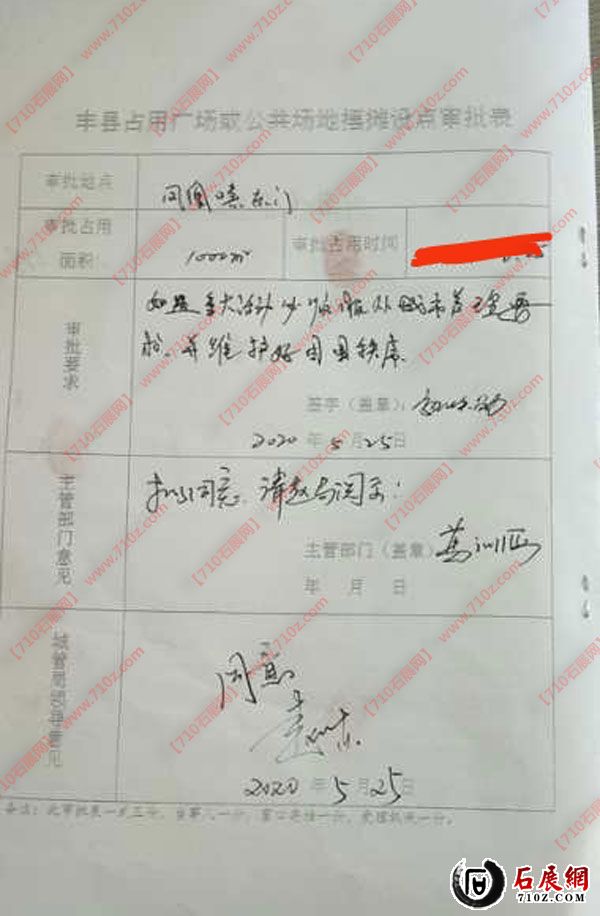 丰县占用广场或公共场地摆摊设点审批表
审批地点
凤凰嘴东门
审批占用
面积
1000㎡
审批占用时间
审批要求
如遇重大活动必须服从城市管理要
求,并维护好周围秩序
签字(盖章):
2020年5月25日
主管部门意见
拟同意,请赵局阅示!
主管部门(盖章)
年 月 日
城管局领导意见
同意
2020年5月25日
备注:此审批表一式三份,当事人一份,窗口存档一份,受理机关一份。
【710石展网】www.710z.com
石展網
710Z.COM